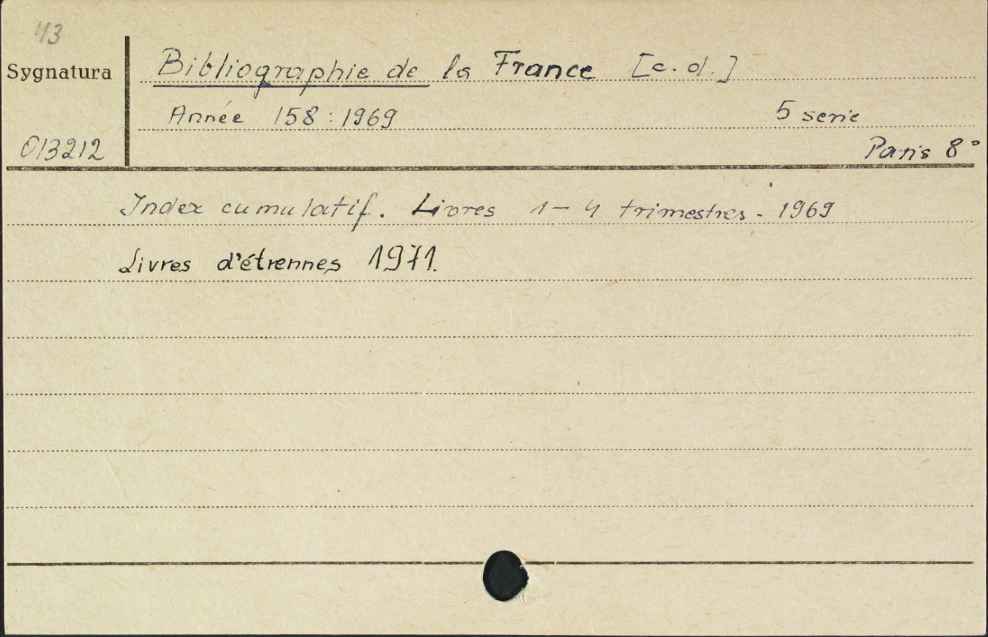 43
Sygnatura
Bibliographie de la France [c.d.]
Année 158:1969 5 serie
013212
Paris 8°
Index cumulatif. Livres 1-4 trimestres - 1969
Livres d'étrennes 1971.